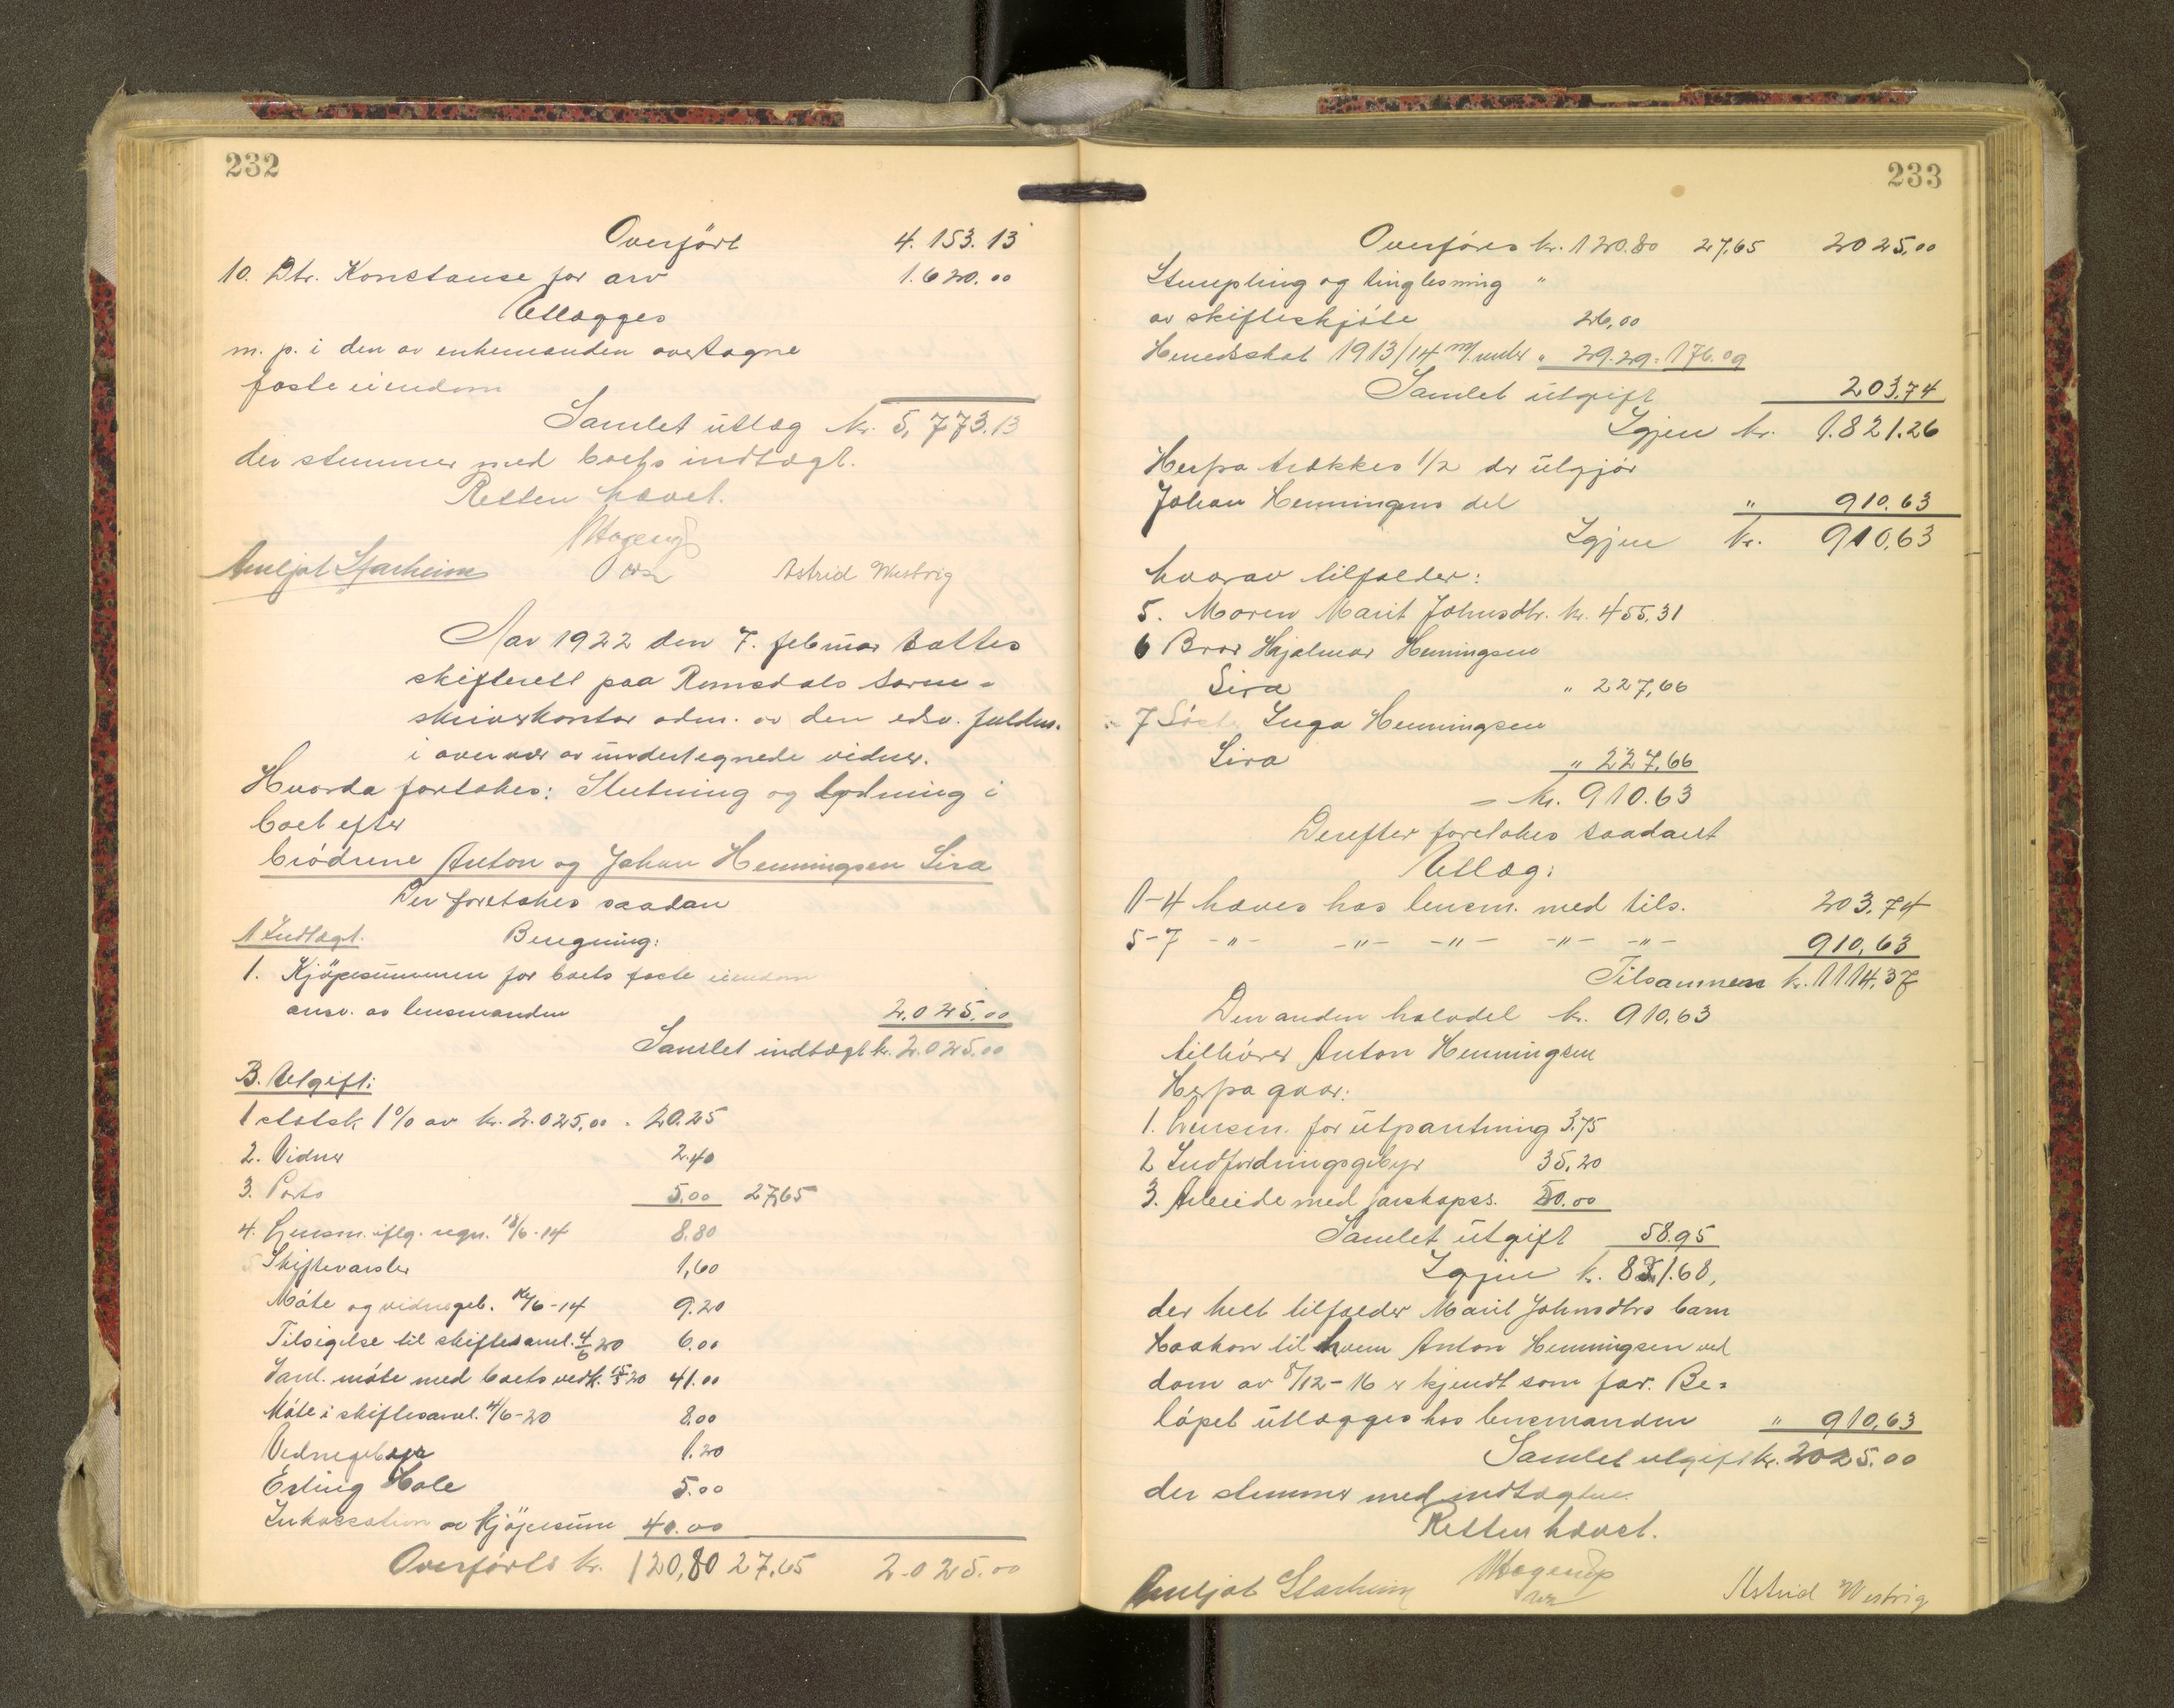 232
Overført 4.153.13
10. Dtr. Konstanse for arv 1.620.00
Utlægges
m. p. i den av enkemanden overtagne
faste eiendom
Samlet utlæg kr. 5,773.13
der stemmer med boets indtægt.
Retten hævet.
Astrid Westvig
Aar 1922 den 7. februar sattes
skifterett paa Romsdals soren-
skriverkontor adm. av den edsv. fuldm.
i overvær av undertegnede vidner.
Hvorda foretokes: Slutning og lodning i
boet efter
brødrene Anton og Johan Henningsen Sira
Der foretokes saadan
A Indtægt. Beregning:
1. Kjöpesummen for boets faste eiendom
ansv. av lensmanden 2.025.00
Samlet indtægt kr. 2.025.00
B. Utgift:
1 statsk. 1% av kr. 2.025,00 . 20.25
2. Vidner 2.40
3. Porto 5.00 27,65
4. Lensm. iflg. regn. 18/6-14 8.80
Skiftevarsler 1,60
Møte og vidnegeb. 6-14 9.20
Tilsigelse til skiftesaml. 4/6 20 6.00
møte med boets vedk. 20 41.00
Møte i skiftesaml. 4/6-20 8.00
Vidnegebyr 1.20
Erling Hole 5.00
Inkassation av kjöpesum 40.00
Overførts kr. 120,80 27,65 2.025.00
233
Overføres kr. 120.80 27,65 2025,00
Stempling og tinglesning "
av skifteskjøte 26,00
Herredsskat 1913/14 m/renter " 29.29 = 176.09
Samlet utgift 203,74
Igjen kr. 1.821.26
Herfra trækkes 1/2 der utgjør
Johan Henningsens del " 910.63
Igjen kr. 910,63
hvorav tilfalder:
5. Moren Marit Johnsdtr. kr. 455,31
6 Bror Hjalmar Henningsen
Sira " 227,66
7 Søster Inga Henningsen
Sira " 227,66
= kr. 910.63
Derefter foretokes saadant
Utlæg:
1-4 hæves hos lensm. med tils. 203,74
5-7 -"- -"- -"- -"- -"- 910,63
Tilsammen kr. 1114,37
Den anden halvdel kr. 910,63
tilhører Anton Henningsen
Herfra gaar:
1. Lensm. for utpantning 3,75
2 Indfordringsgebyr 35,20
3. Arbeide med farskapss. 20.00
Samlet utgift 58.95
Igjen kr. 851.68,
der helt tilfalder Marit Johnsdtrs barn
Haakon til hvem Anton Henningsen ved
dom av 8/12-16 er kjendt som far. Be-
løpet utlægges hos lensmanden " 910,63
Samlet utgift kr. 2025.00
der stemmer med indtægten.
Retten hævet.
Astrid Westvig